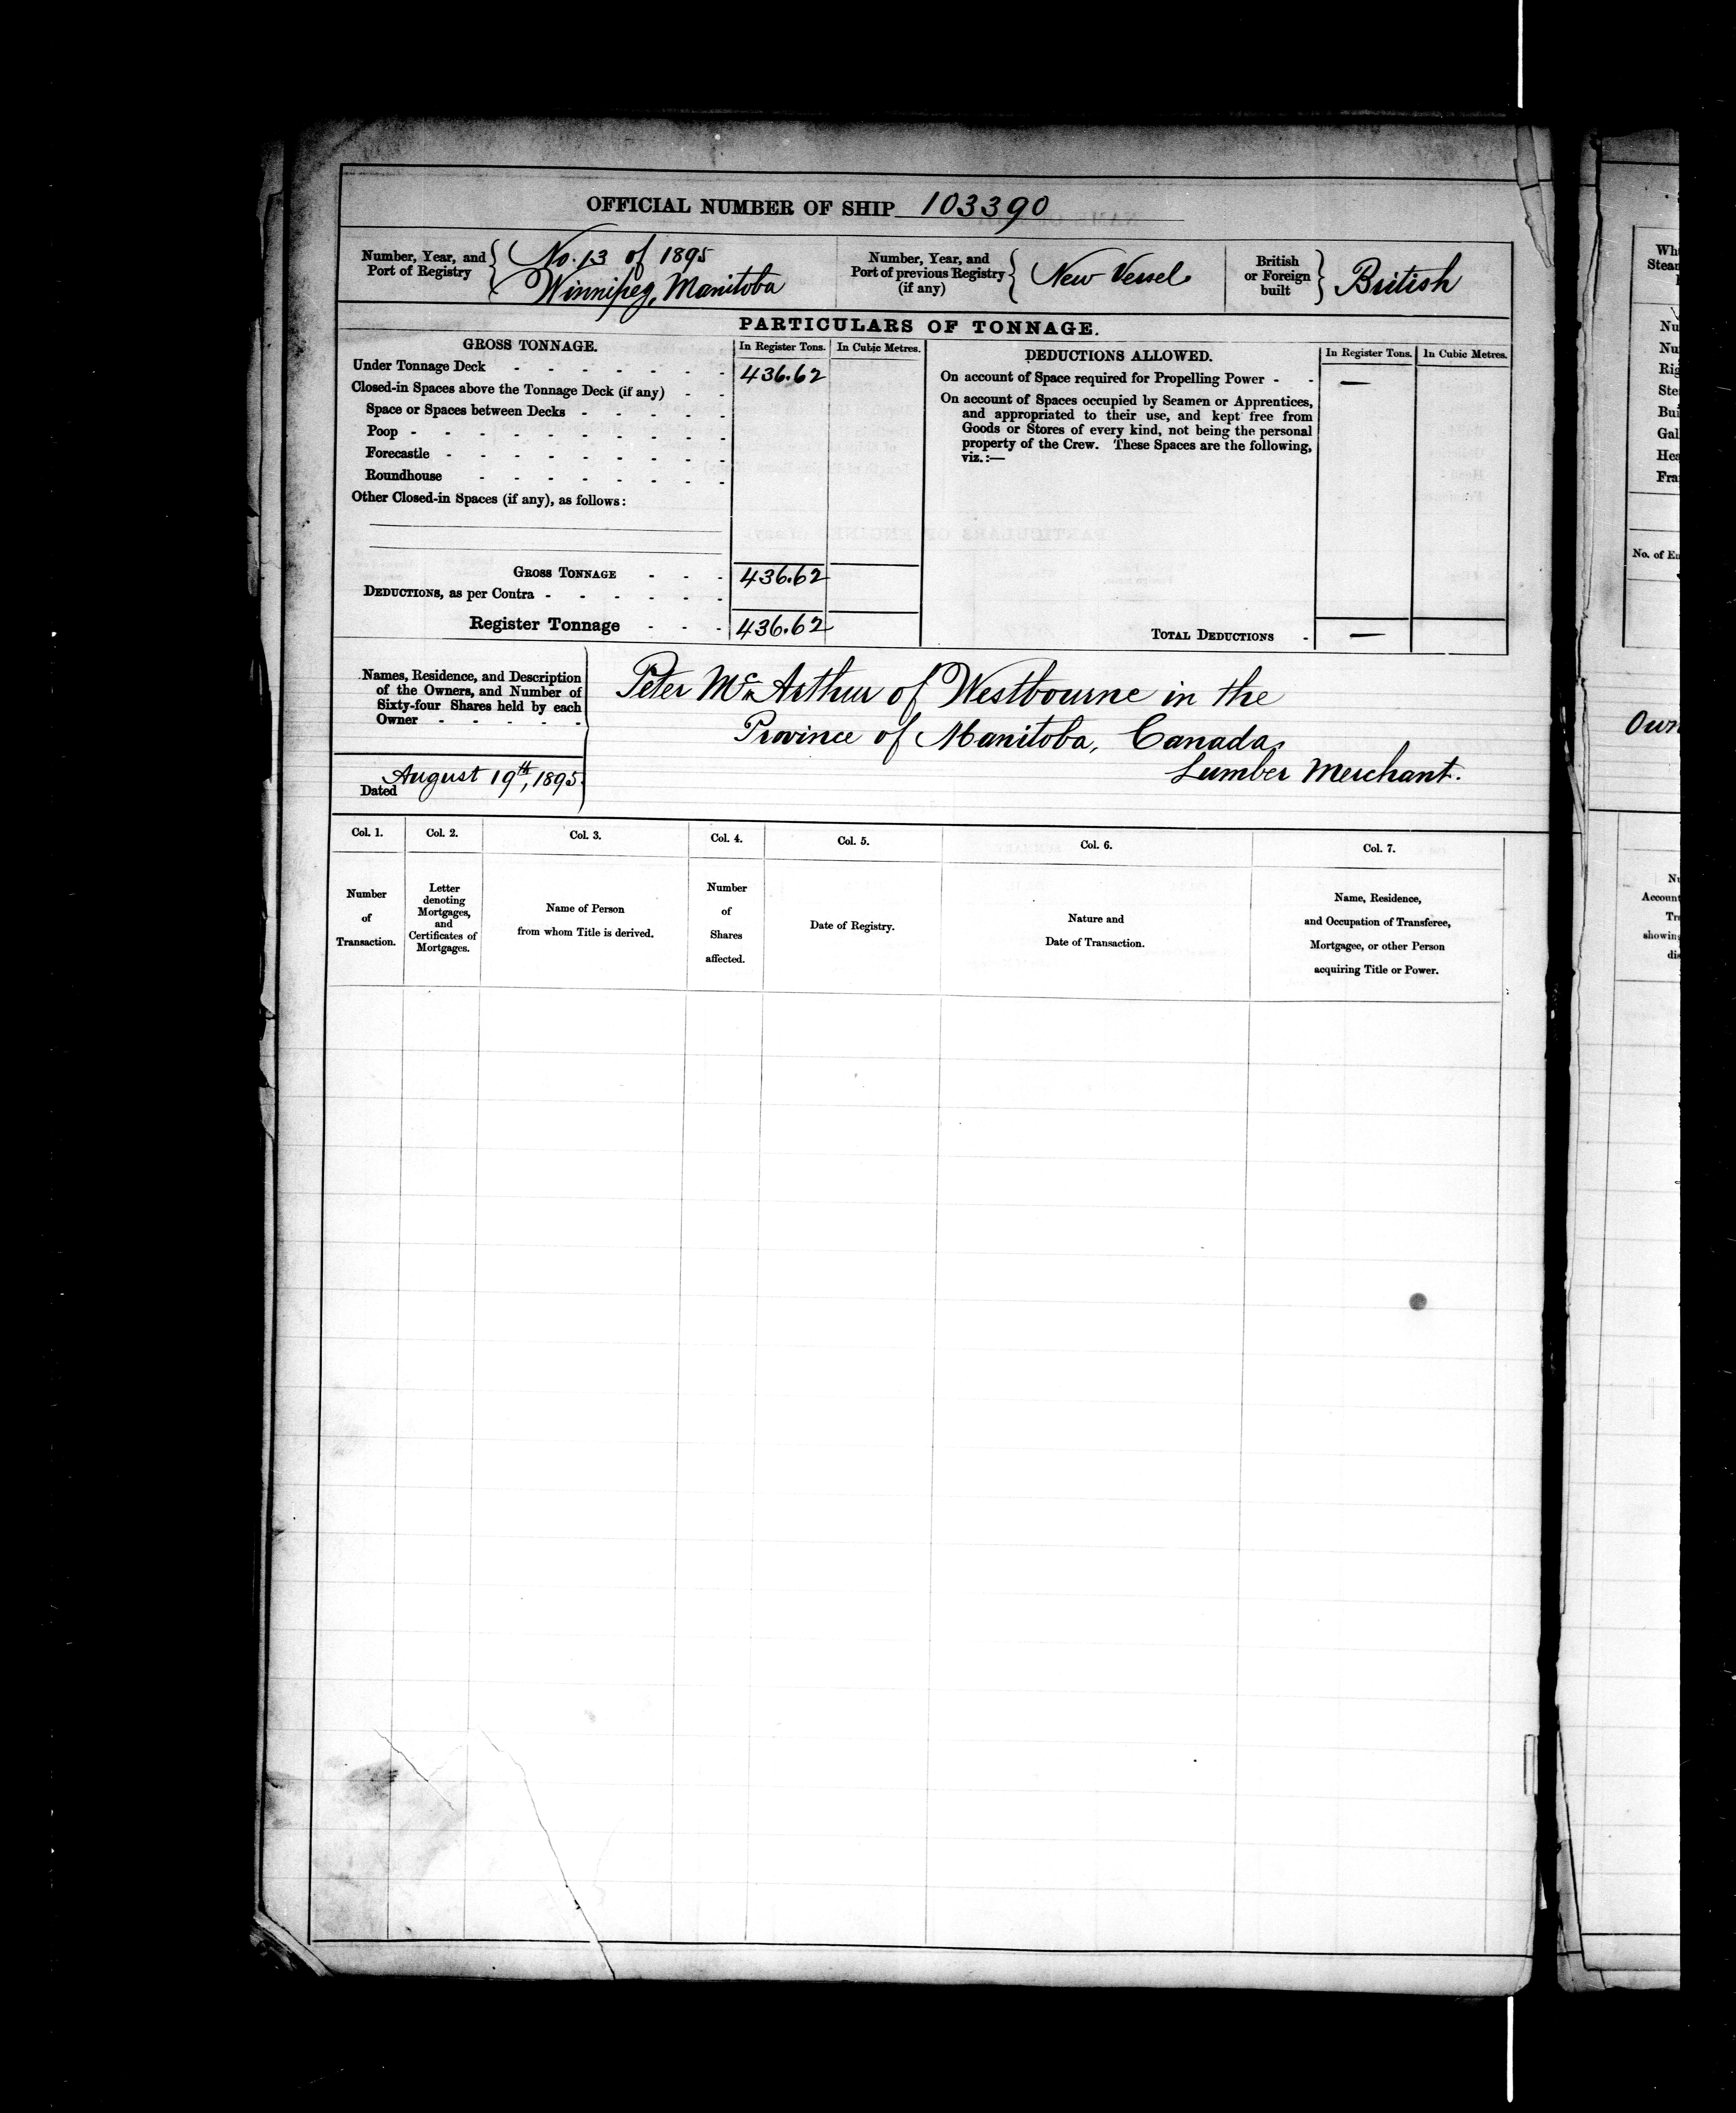 OFFICIAL NUMBER OF SHIP 103390
Number, Year, and Port of Registry { No. 13 of 1895
Winnipeg, Manitoba
Number, Year, and Port of previous Registry (if any) { New Vessel
British or Foreign built } British
PARTICULARS OF TONNAGE.
GROSS TONNAGE. In Register Tons. In Cubic Metres.
Under Tonnage Deck - - - - - - - 436.62
Closed-in Spaces above the Tonnage Deck (if any) - -
Space or Spaces between Decks - - - - -
Poop - - - - - - - - - -
Forecastle - - - - - - - - -
Roundhouse - - - - - - - -
Other Closed-in Spaces (if any), as follows:
GROSS TONNAGE - - - 436.62
DEDUCTIONS, as per Contra - - - - - -
Register Tonnage - - - 436.62
DEDUCTIONS ALLOWED. In Register Tons. In Cubic Metres.
On account of Space required for Propelling Power - - —
On account of Spaces occupied by Seamen or Apprentices,
and appropriated to their use, and kept free from
Goods or Stores of every kind, not being the personal
property of the Crew. These Spaces are the following,
viz.:—
TOTAL DEDUCTIONS - —
Names, Residence, and Description
of the Owners, and Number of
Sixty-four Shares held by each
Owner - - - - -
Dated August 19th, 1895.
Peter McArthur of Westbourne in the
Province of Manitoba, Canada,
Lumber Merchant.
Col. 1. Col. 2. Col. 3. Col. 4. Col. 5. Col. 6. Col. 7.
Number
of
Transaction.
Letter
denoting
Mortgages,
and
Certificates of
Mortgages.
Name of Person
from whom Title is derived.
Number
of
Shares
affected.
Date of Registry.
Nature and
Date of Transaction.
Name, Residence,
and Occupation of Transferee,
Mortgagee, or other Person
acquiring Title or Power.
No. of En
Account
showing